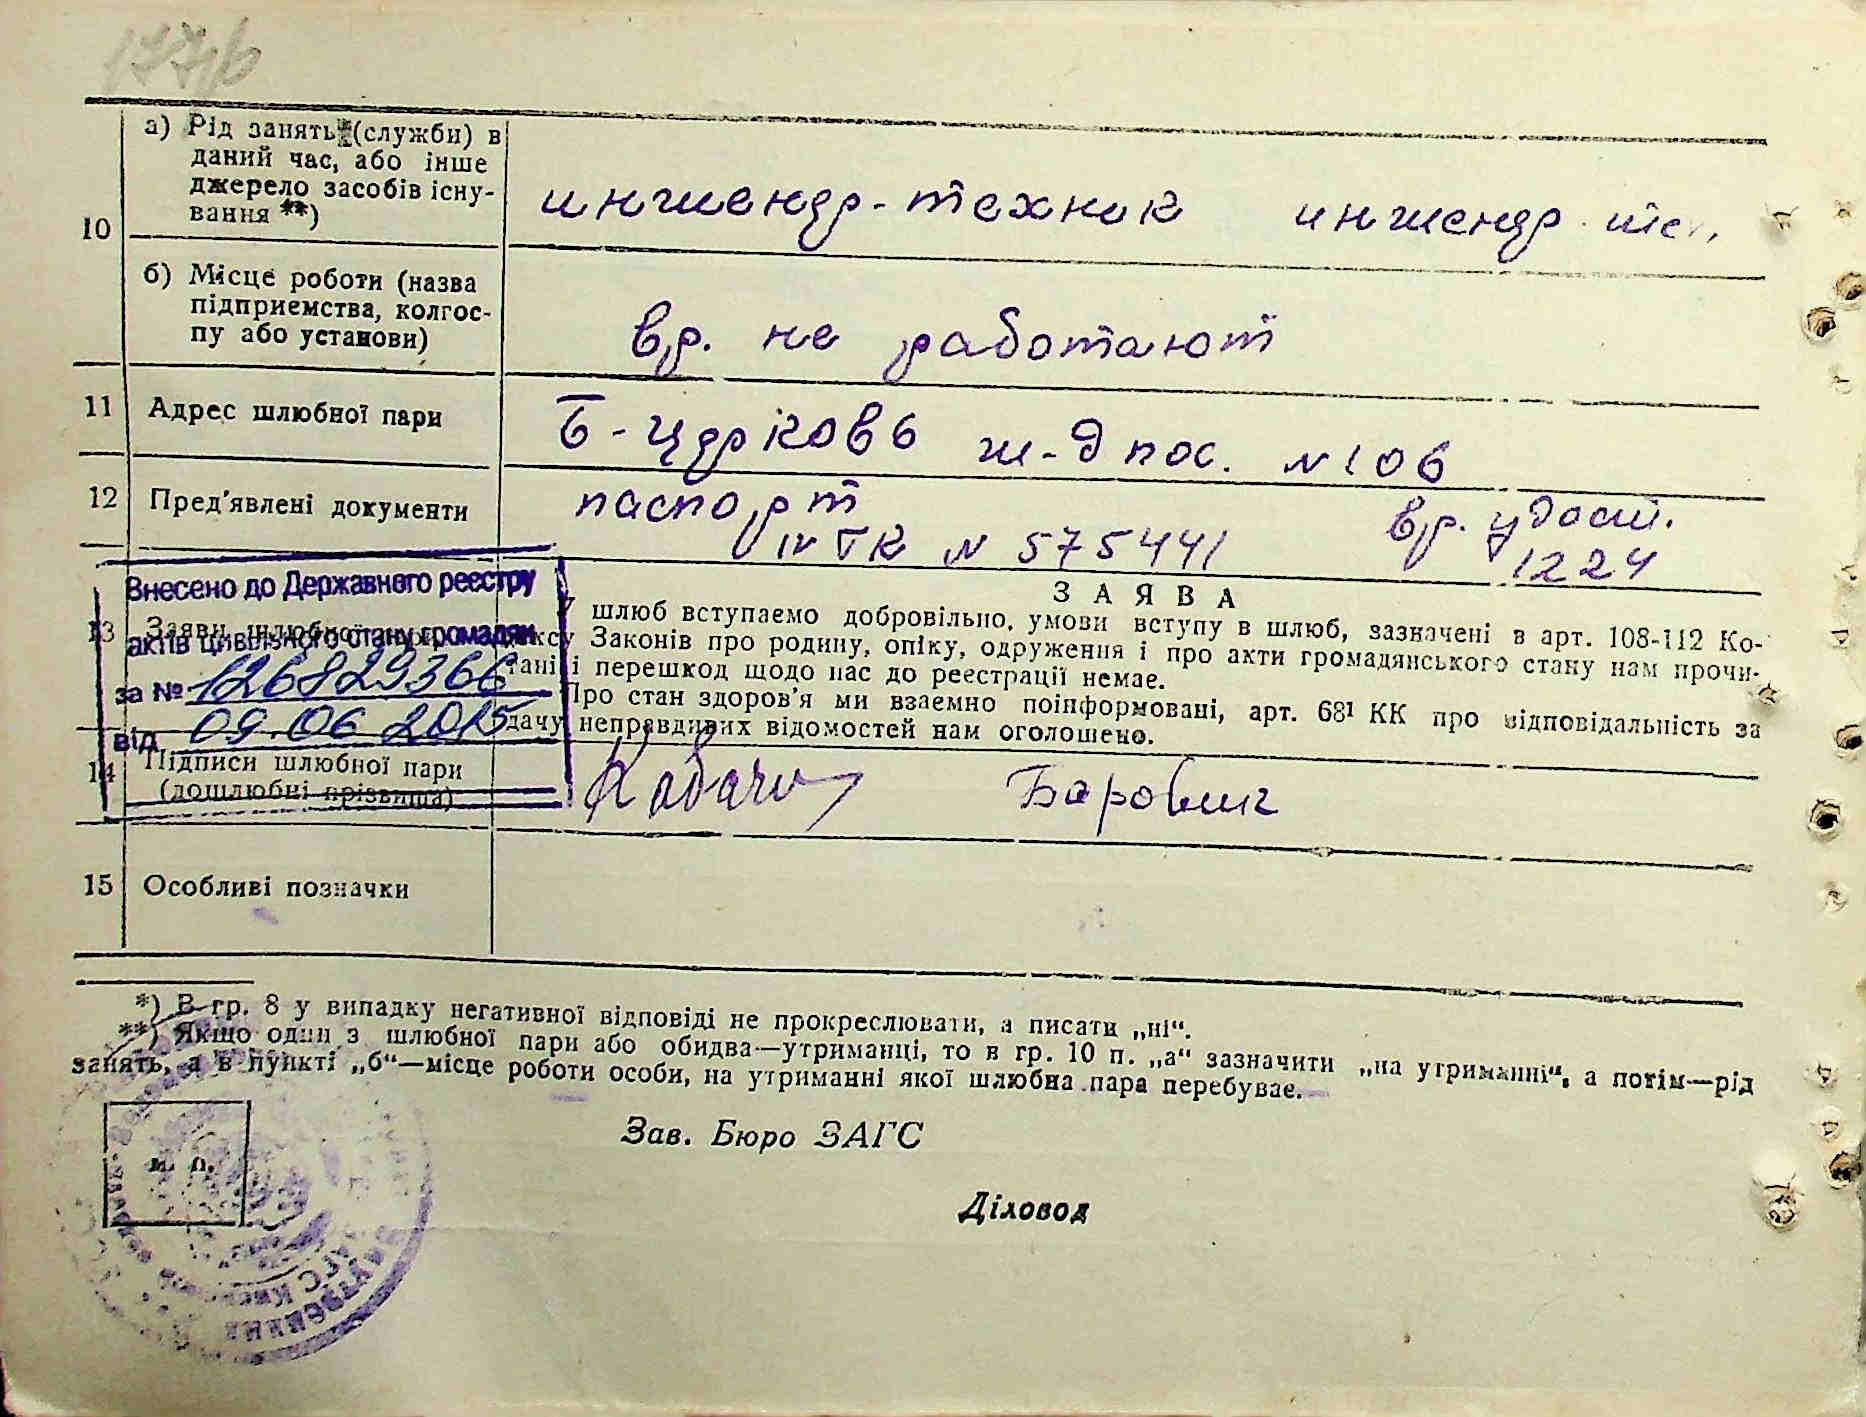 а) Рід занять (служби) в
даний час, або інше
джерело засобів існу-
вання **)
10
инженер-техник инженер-
б) Місце роботи (назва
підприємства, колгос-
пу або установи)
вр. не работают
11 Адрес шлюбної пари
Б-Церковь ж-д пос. №106
12 Пред'явлені документи
паспорт вр. удост.
IV ТК № 575441 1224
Внесено до Державного реєстру
актів цивільного стану громадян
за № 126829366
від 09.06 2015
13 Заяви шлюбної
ЗАЯВА
У шлюб вступаємо добровільно, умови вступу в шлюб, зазначені в арт. 108-112 Ко-
дексу Законів про родину, опіку, одруження і про акти громадянського стану нам прочи-
тані і перешкод щодо нас до реєстрації немає.
Про стан здоров'я ми взаємно поінформовані, арт. 68¹ КК про відповідальність за
дачу неправдивих відомостей нам оголошено.
14 Підписи шлюбної пари
(дошлюбні прізвища)
15 Особливі позначки
*) В гр. 8 у випадку негативної відповіді не прокреслювати, а писати „ні“.
**) Якщо один з шлюбної пари або обидва—утриманці, то в гр. 10 п. „а“ зазначити „на утриманні“, а потім—рід
занять, а в пункті „б“—місце роботи особи, на утриманні якої шлюбна пара перебуває.
м. п.
Зав. Бюро ЗАГС
Діловод